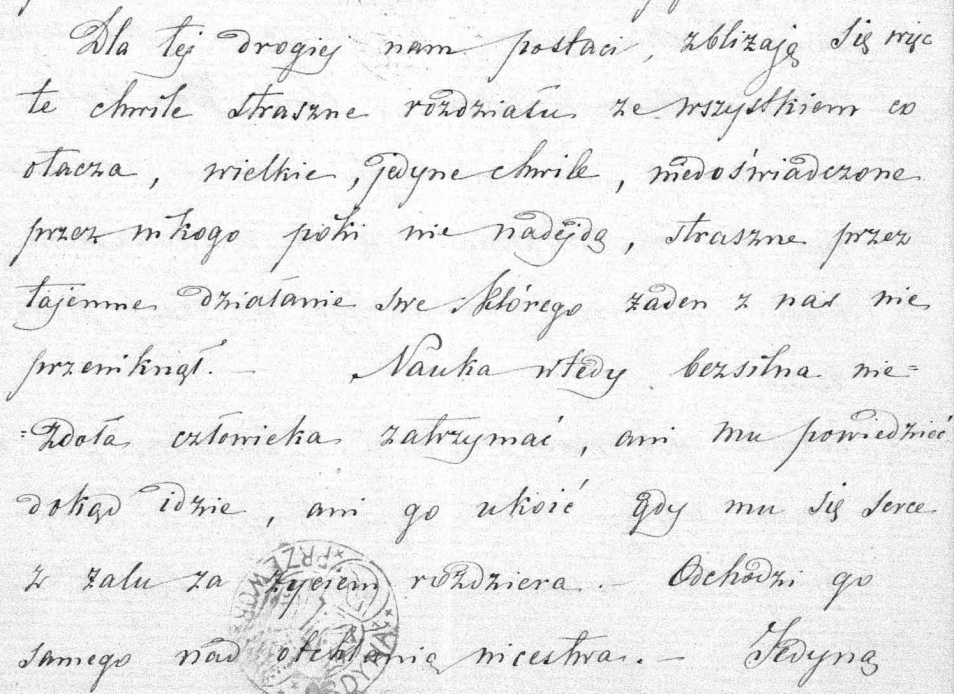 Dla tej drogiej nam postaci, zbliżają się więc
te chwile straszne rozdziału ze wszystkiem co
otacza, wielkie, jedyne chwile, niedoświadczone
przez nikogo póki nie nadejdą, straszne przez
tajemne działanie swe którego żaden z nas nie
przeniknął. — Nauka wtedy bezsilna nie=
=zdoła człowieka zatrzymać, ani mu powiedzieć
dokąd idzie, ani go ukoić gdy mu się serce
z żalu za życiem rozdziera. — Odchodzi go
samego nad otchłanią nicestwa. — Jedyną